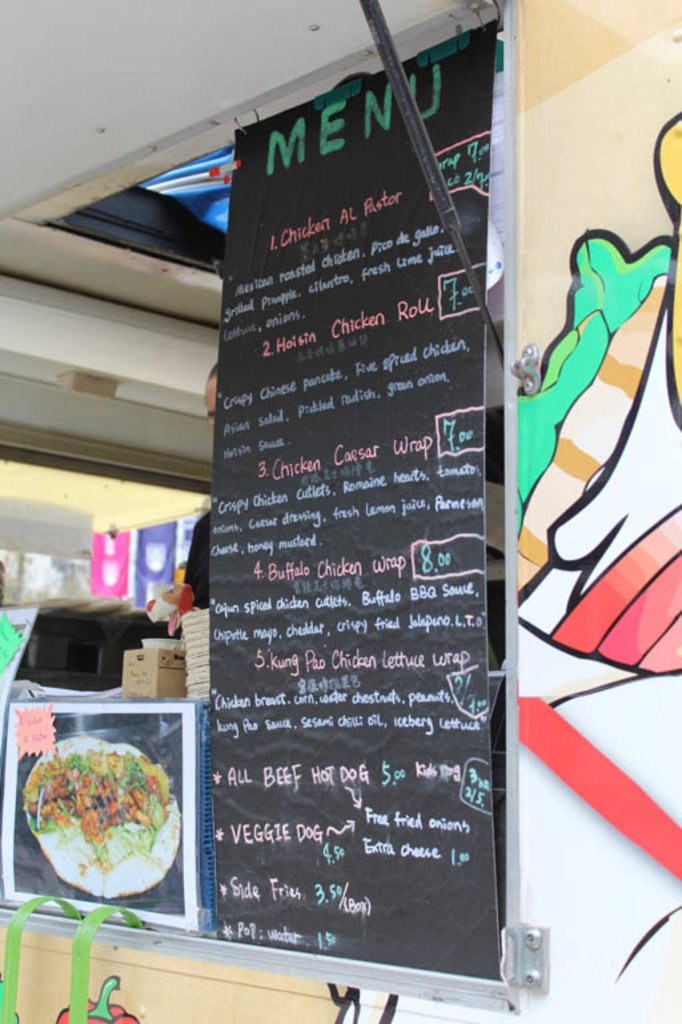 MENU
wrap 7.00
1. Chicken AL Pastor
"Mexican roasted chicken, Pico de gallo,
grilled Pineapple, cilantro, fresh lime juice,
lettuce, onions.
2. Hoisin Chicken Roll 7.00
"Crispy Chinese pancake, Five spiced chicken,
Asian salad, Pickled radish, green onion,
Hoisin sauce.
3. Chicken Caesar Wrap 7.00
"Crispy Chicken Cutlets, Romaine hearts, tomatoes,
onions, Caesar dressing, fresh lemon juice, Parmesan
cheese, honey mustard.
4. Buffalo Chicken Wrap 8.00
"Cajun spiced chicken cutlets, Buffalo BBQ Sauce,
Chipotle mayo, cheddar, crispy fried Jalapeno. L.T.O
5. Kung Pao Chicken Lettuce wrap
"Chicken breast, corn, water chestnuts, peanuts,
kung Pao sauce, Sesami chilli oil, iceberg lettuce"
* ALL BEEF HOT DOG 5.00 Kids Dog 3.00
2/5.
* VEGGIE DOG Free fried onions
4.50 Extra cheese 1.00
* Side Fries 3.50/(Box)
* POP: water 1.50